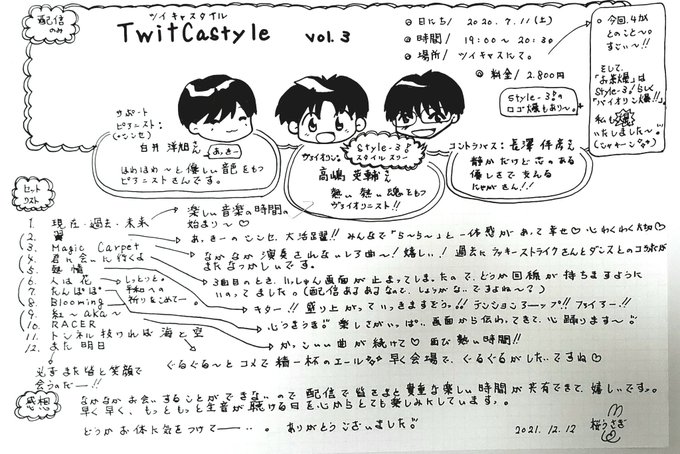 配信のみ
ツイキャスタイル
TwitCastyle vol.3
◎ 日にち/ 2020.7.11(土)
◎ 時間/ 19:00〜20:30
◎ 場所/ ツイキャスにて。
◎ 料金/ 2.800円
Style-3!の
ロゴ爆もあり〜。
◦ 今回、4が
とのこと〜。
すごい〜!!
そして、
「お茶爆」は
Style-3!らしく
「バイオリン爆!!」
私も
いたしました〜。
サポート
ピアニスト:
(+シンセ)
白井 洋翔さん
あっきー
ほわほわ〜と優しい音色をもつ
ピアニストさんです。
Style-3!
スタイル スリー
ヴァイオリン:
高嶋 英輔さん
熱い熱い魂をもつ
ヴァイオリニスト!!
コントラバス:長澤 伴彦さん
静かだけど芯のある
優しさで支える
にゃがさん!!
セットリスト
1. 現在・過去・未来
楽しい音楽の時間の
始まり〜♡
2. 翼
あっきーのシンセ、大活躍!! みんなで"ら〜ら〜"と一体感があって幸せ♡心わくわく
3. Magic Carpet
なかなか演奏されないレア曲〜!嬉しい!過去にラッキーストライクさんとダンスとのコラボが
またなつかしいです。
4. 君に会いに行くよ
3曲目のとき、いっしゅん画面が止まってしまったので、どうか回線が持ちますように
いのってました(配信あるあるなので、しょうがな〜いですよね〜?)
5. 熱情
キター!! 盛り上がっていきますぞう!! テンションアーップ!! ファイアー!!
6. 人は花
7. たんぽぽ
しっとりと。
平和への
祈りをこめて…。
8. Blooming
心うきうき 楽しさがいっぱい。画面から伝わってきて、心踊ります〜
9. 紅〜Aka〜
10. RACER
かっこいい曲が続けて♡再び熱い時間!!
11. トンネル抜ければ海と空
ぐるぐる〜とコメで精一杯のエール 早く会場で、ぐるぐるがしたいですね♡
12. また明日
必ずまた皆と笑顔で
会うのだー!!
感想
なかなかお会いすることができないので配信で皆さまと貴重な楽しい時間が共有できて、嬉しいです。
早く早く、もっともっと生音が聴ける日を心からとても楽しみにしています。
どうかお体に気をつけて…。 ありがとうございました
2021.12.12
桜うさぎ